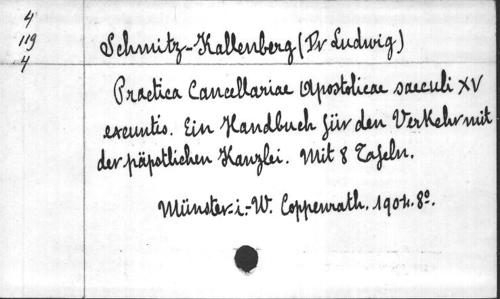 4
119
4
Schmitz-Kallenberg (Dr Ludwig)
Practica Cancellariae Apostolicae saeculi XV
exeuntis. Ein Handbuch für den Verkehr mit
der päpstlichen Kanzlei. Mit 8 Tafeln.
Münster i. W. Coppenrath. 1904. 8º.